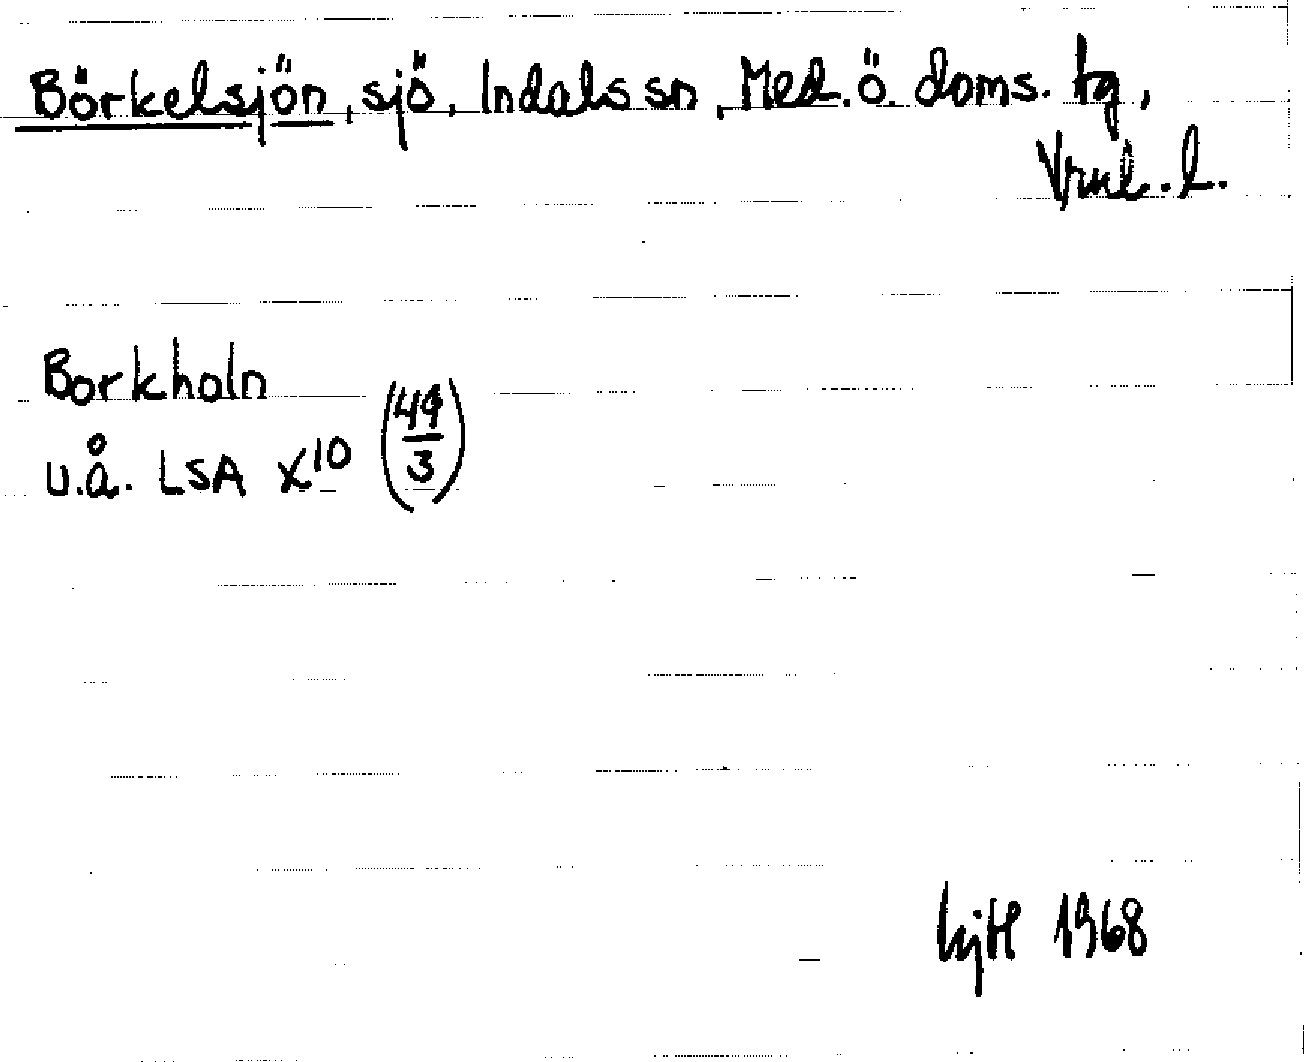 Börkelsjön, sjö, Indals sn, Med. ö. doms. tg,
Vrnl. l.
Borkholn
u.å. LSA X¹⁰ (49/3)
1968